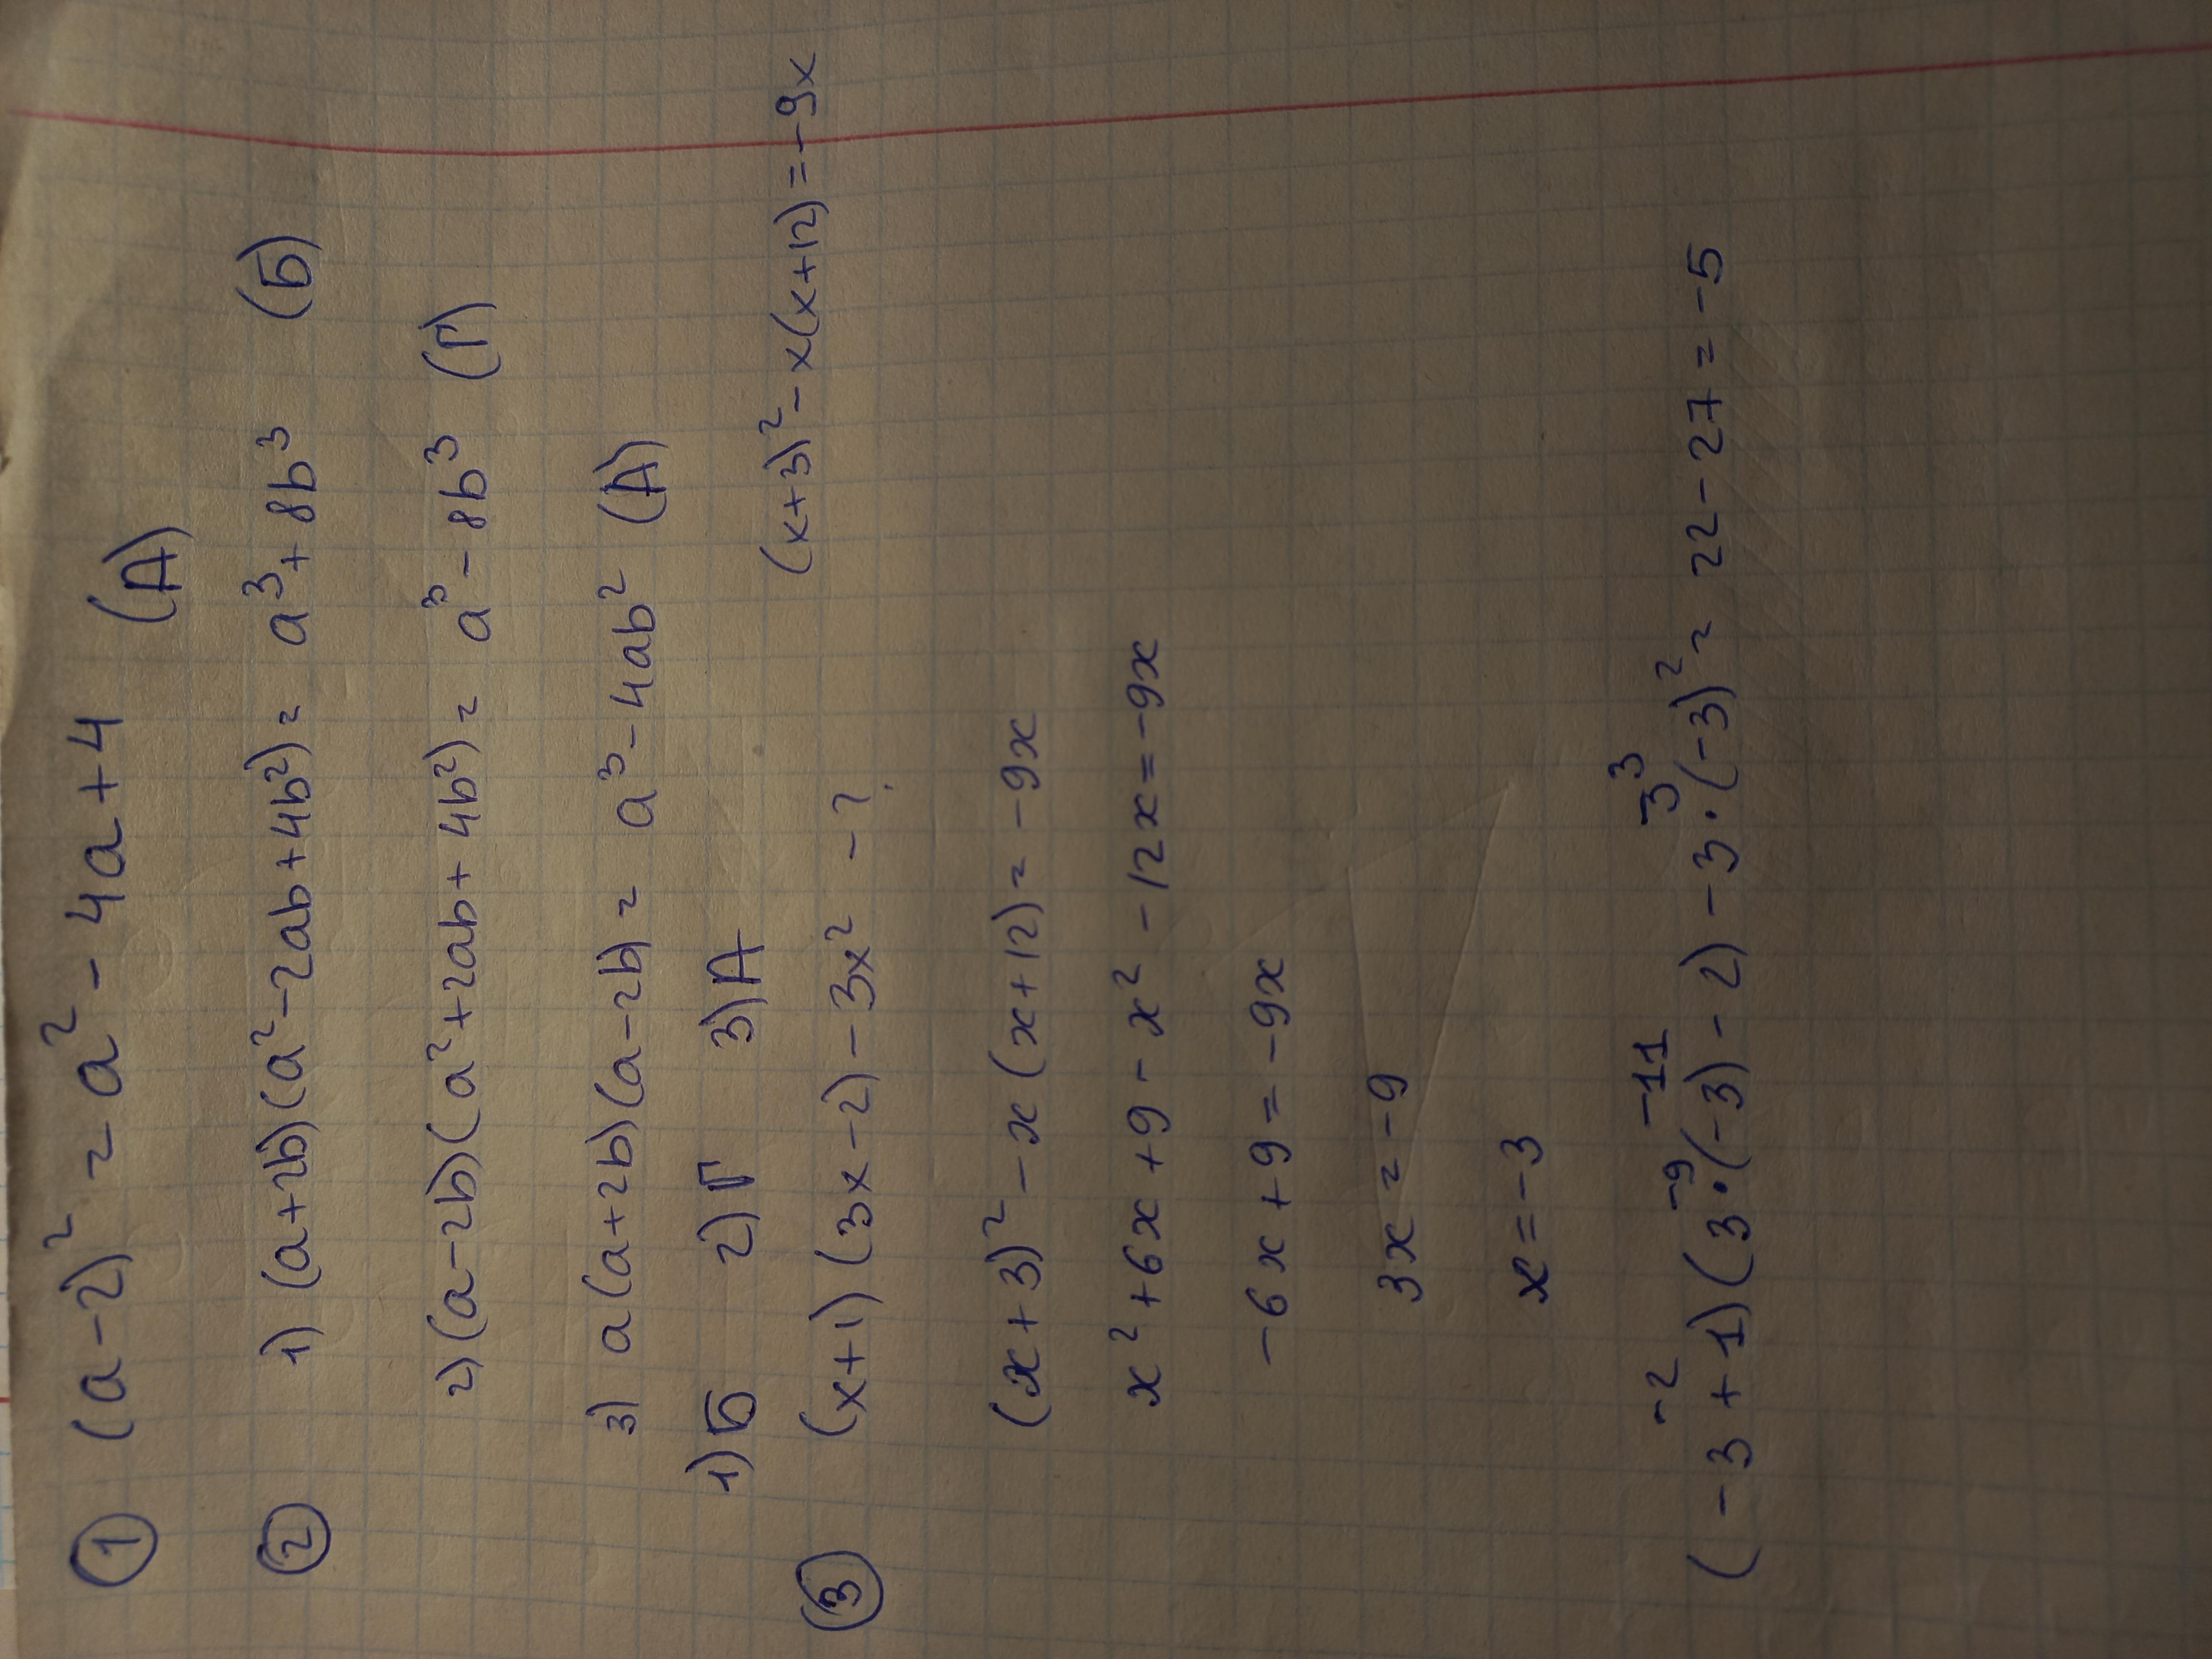 ① (a-2)² = a² - 4a + 4 (А)
② 1) (a+2b)(a²-2ab+4b²) = a³ + 8b³ (Б)
2) (a-2b)(a²+2ab+4b²) = a³ - 8b³ (Г)
3) a(a+2b)(a-2b) = a³ - 4ab² (А)
1) Б 2) Г 3) А
③ (x+1)(3x-2) - 3x² - ? (x+3)² - x(x+12) = -9x
(x+3)² - x(x+12) = -9x
x² + 6x + 9 - x² - 12x = -9x
-6x + 9 = -9x
3x = -9
x = -3
-2 -9 -11 -3 3
(-3+1)(3·(-3)-2) - 3·(-3)² = 22 - 27 = -5